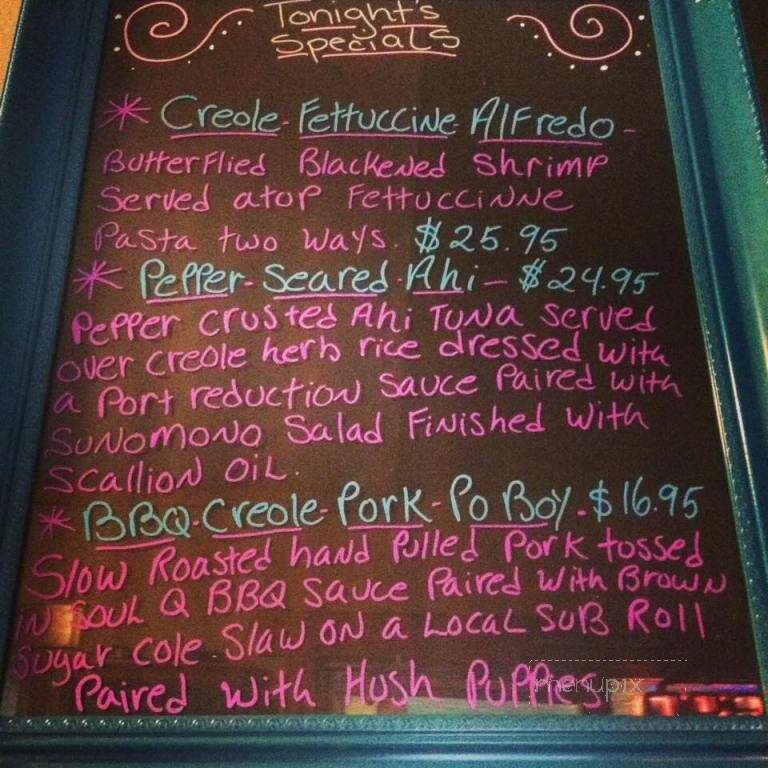 Tonight's
Specials
* Creole-Fettuccine Alfredo-
Butterflied Blackened Shrimp
Served atop Fettuccinne
Pasta two ways. $25.95
* Pepper-Seared Ahi- $24.95
Pepper crusted Ahi Tuna served
over creole herb rice dressed with
a Port reduction sauce Paired with
Sunomono Salad Finished with
Scallion oil.
* BBQ-Creole-Pork-Po Boy-$16.95
Slow Roasted hand Pulled Pork tossed
in Soul Q BBQ Sauce Paired with Brown
Sugar Cole Slaw on a Local Sub Roll
Paired with Hush Puppies!
menupix